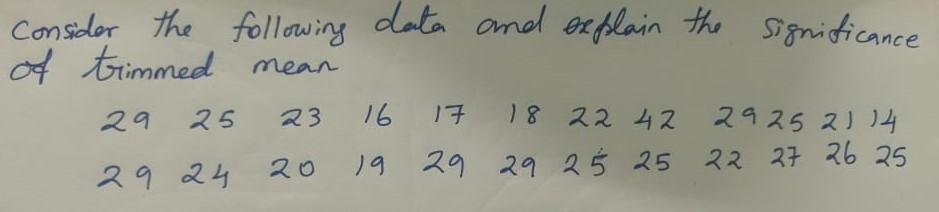 Consider the following data and explain the significance
of trimmed mean
29 25 23 16 17 18 22 42 29 25 21 14
29 24 20 19 29 29 25 25 22 27 26 25